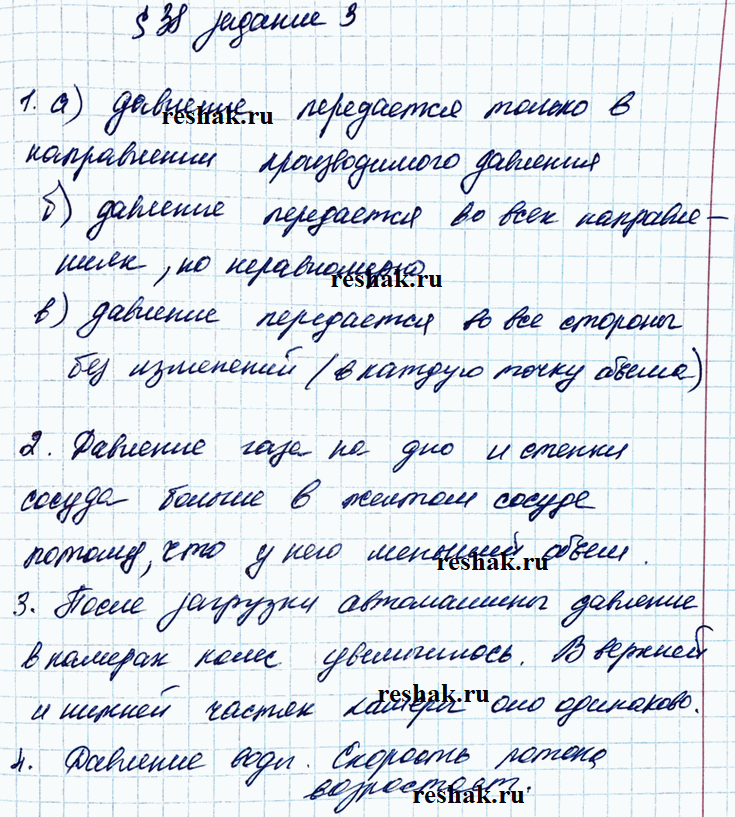 § 38 задание 3
1. а) давление передается только в
направлении производимого давления
б) давление передается во всех направле-
ниях, но неравномерно
в) давление передается во все стороны
без изменений (в каждую точку объема)
2. Давление газа на дно и стенки
сосуда больше в желтом сосуде
потому, что у него меньший объем.
3. После загрузки автомашины давление
в камерах колес увеличилось. В верхней
и нижней частях камеры оно одинаково.
4. Давление воды. Скорость потока
возрастает.
reshak.ru
reshak.ru
reshak.ru
reshak.ru
reshak.ru